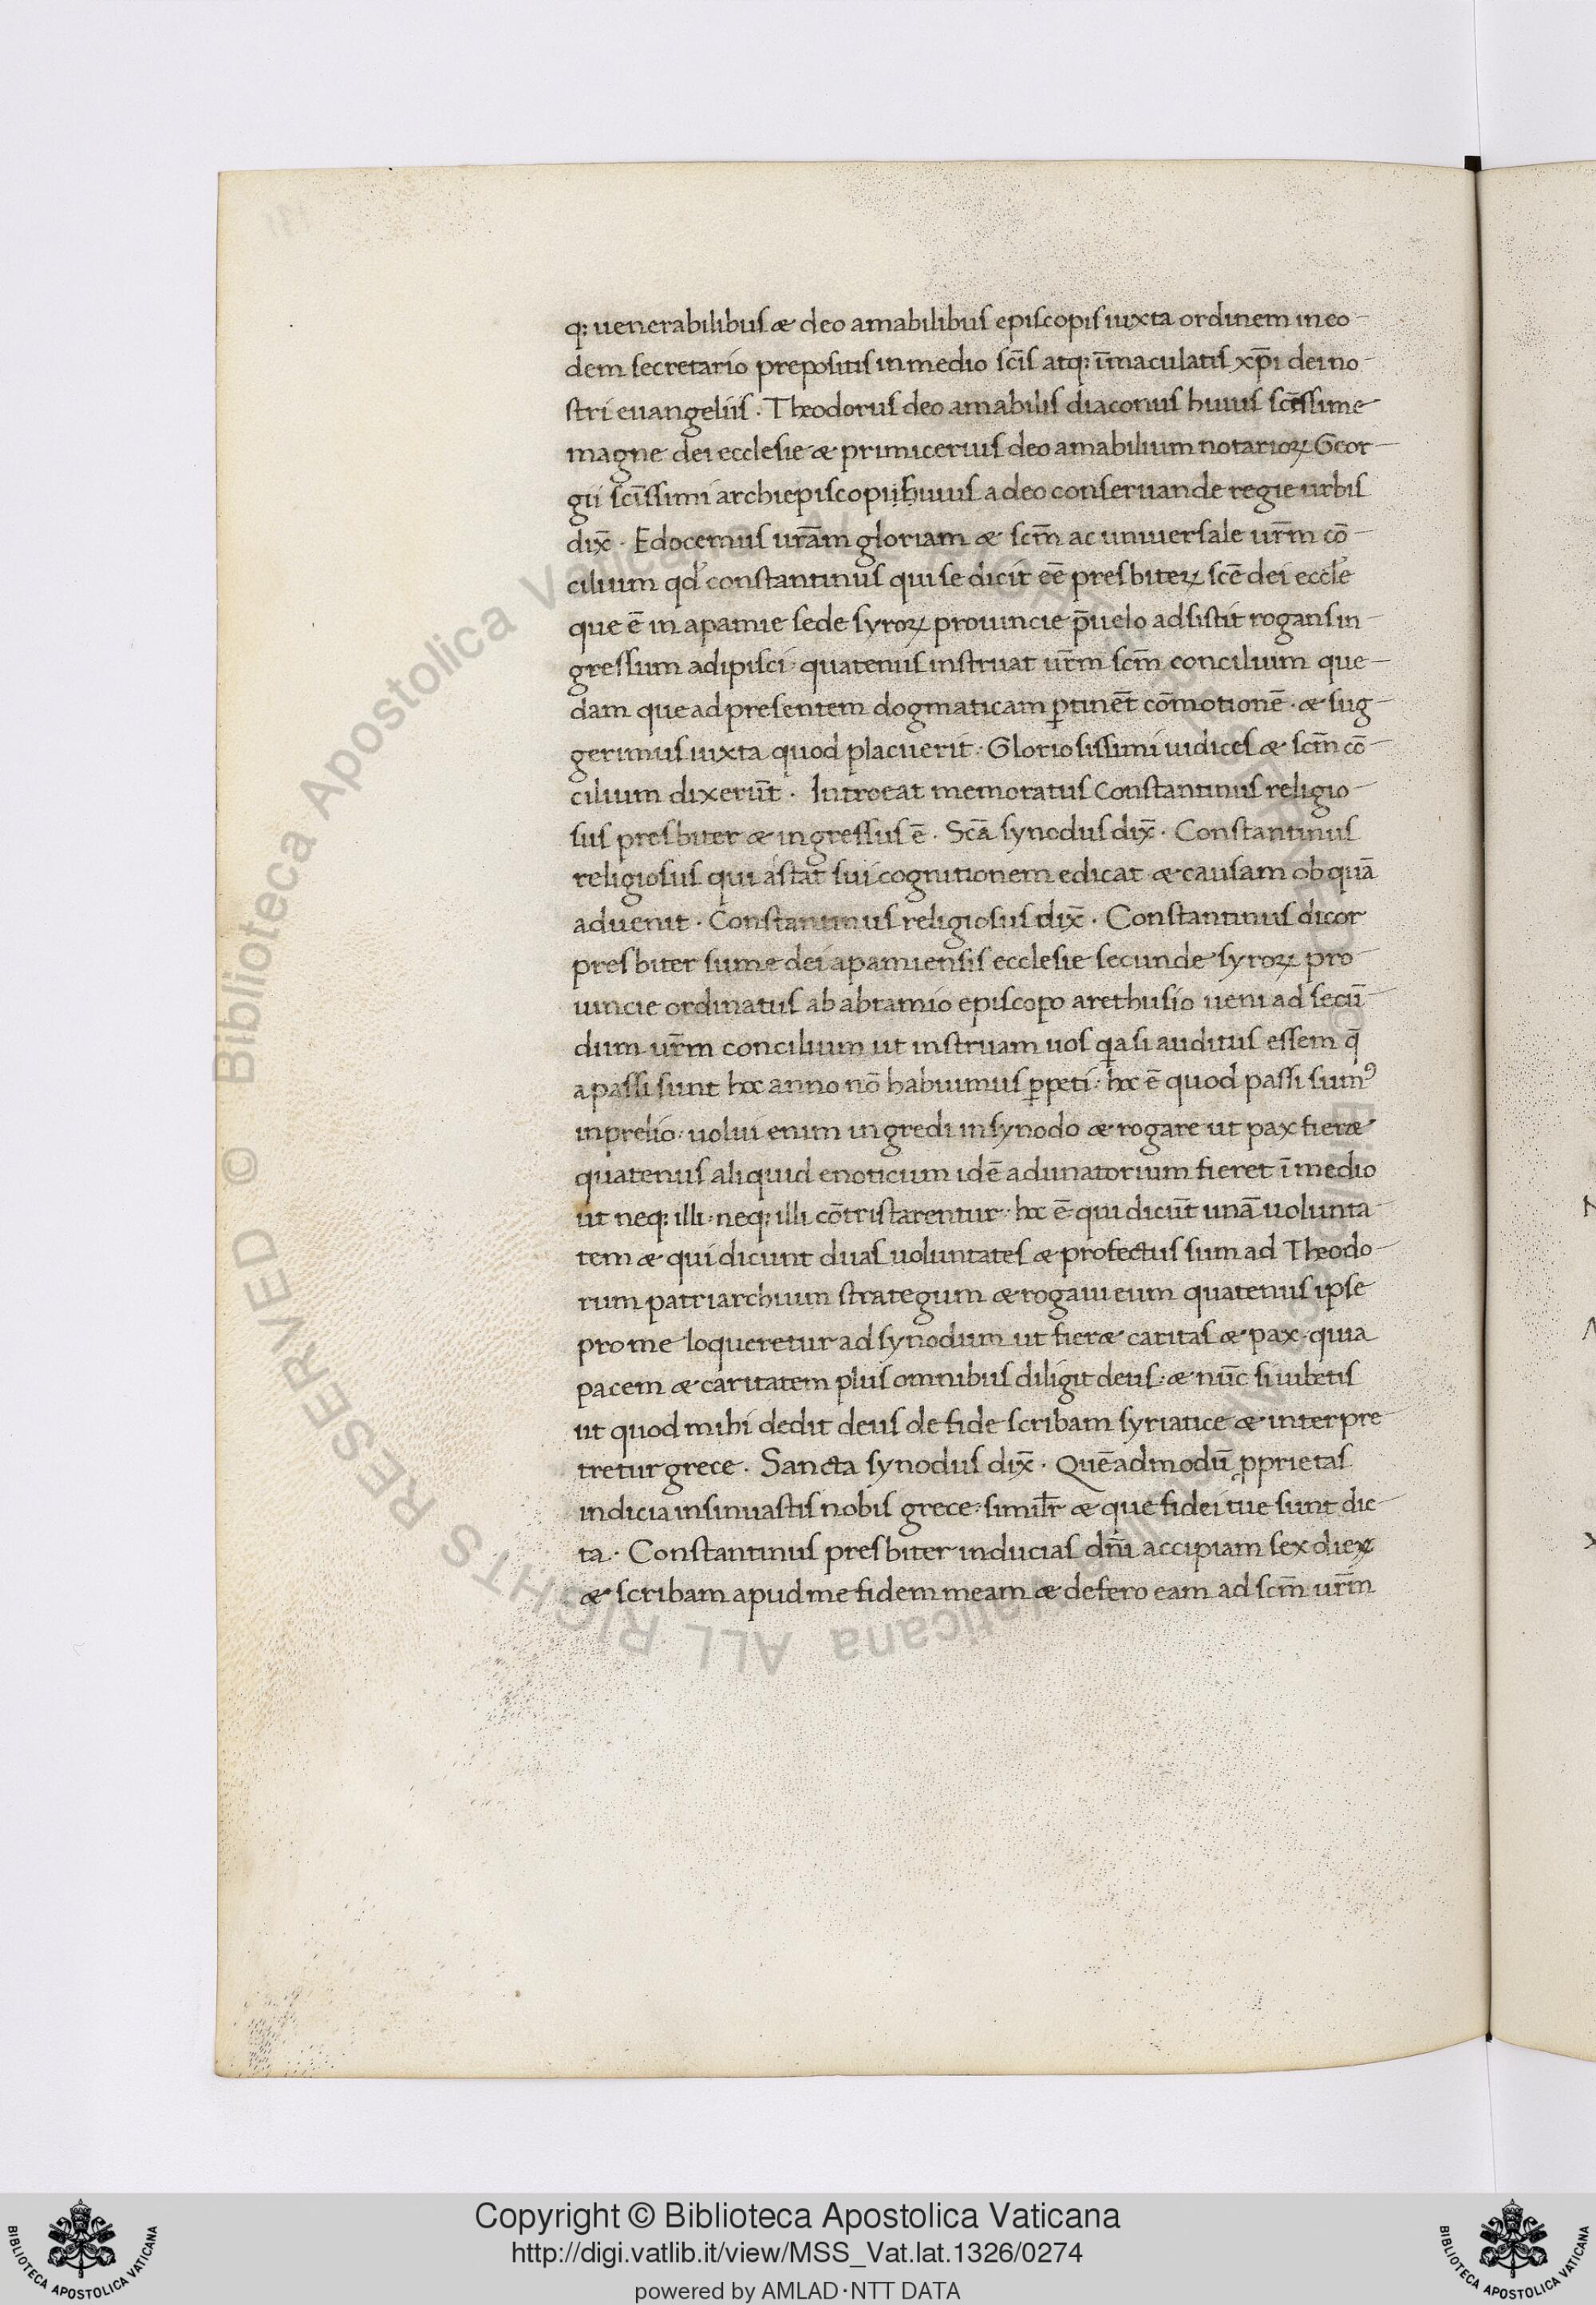 q; uenerabilibus & deo amabilibus episcopis iuxta ordinem in eo
dem secretario prepositis in medio sc̄is atq; īmaculatis xp̄i dei no
stri euangeliis. Theodorus deo amabilis diaconus huius sc̄essime
magne dei ecclesie & primicerius deo amabilium notarioꝝ Geor
gii sc̄issimi archiepiscopi huius a deo conseruande regie urbis
dix̄. Edocemus ur̄am gloriam & sc̄m ac uniuersale ur̄m cō
cilium qd' constantinus qui se dicit eē presbiteꝝ scē dei eccle
que ē in apamie sede syroꝝ prouincie p̄ uelo adsistit rogans in
gressum adipisci quatenus instruat ur̄m sc̄m concilium que
dam que ad presentem dogmaticam ꝑtinēt cōmotionē. & sug
gerimus iuxta quod placuerit. Gloriosissimi iudices & sc̄m cō
cilium dixerūt. Introeat memoratus Constantinus religio
sus presbiter & ingressus ē. Scā synodus dix̄. Constantinus
religiosus qui astat sui cognitionem edicat & causam ob quā
aduenit. Constantinus religiosus dix̄. Constantinus dicor
presbiter sume dei apamiensis ecclesie secunde syroꝝ pro
uincie ordinatus ab abramio episcopo arethusio ueni ad secū
dum ur̄m concilium ut instruam uos qa si auditus essem q̄
a passi sunt hoc anno nō habuimus ꝑpeti: hoc ē quod passi sumꝰ
in prelio: uolui enim ingredi in synodo & rogare ut pax fier&
quatenus aliquid enoticium idē adunatorium fieret ī medio
ut neq; illi: neq; illi cōtristarentur: hoc ē qui dicūt unā uolunta
tem & qui dicunt duas uoluntates & profectus sum ad Theodo
rum patriarchium strategum & rogaui eum quatenus ipse
pro me loqueretur ad synodum ut fier& caritas & pax. quia
pacem & caritatem plus omnibus diligit deus: & nūc si iubetis
ut quod mihi dedit deus de fide scribam syriatice & interpre
tretur grece. Sancta synodus dix̄. Quēadmodū ꝓprietas
indicia insinuastis nobis grece: simil̄r & que fidei tue sunt dic
ta. Constantinus presbiter inducias dn̄i accipiam sex dieꝝ
& scribam apud me fidem meam & defero eam ad sc̄m ur̄m
Copyright © Biblioteca Apostolica Vaticana
http://digi.vatlib.it/view/MSS_Vat.lat.1326/0274
powered by AMLAD·NTT DATA